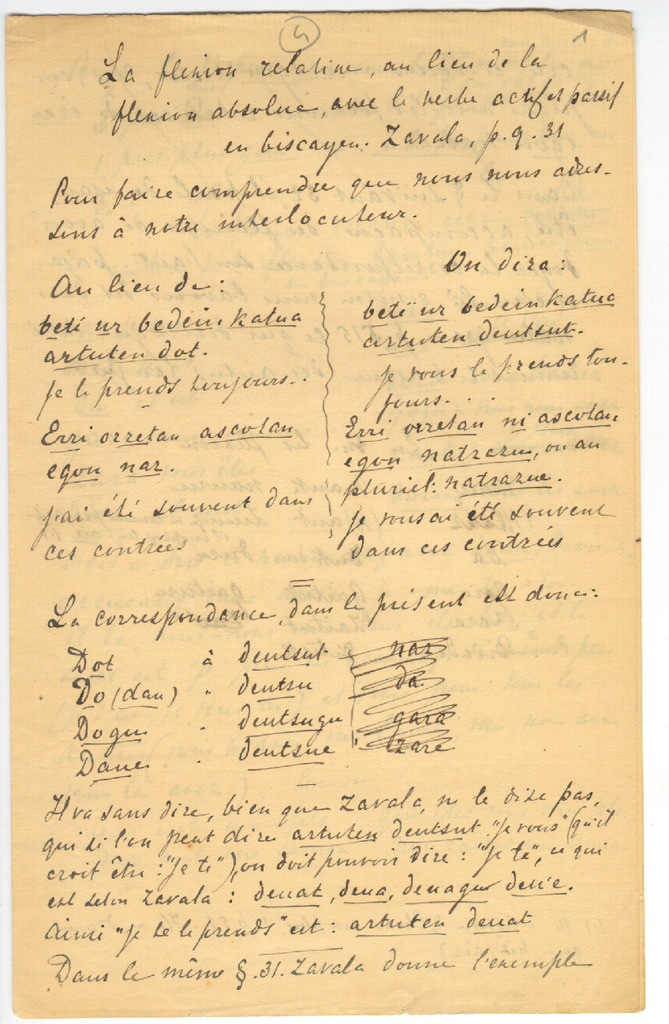 4
1
La flexion relative, au lieu de la
flexion absolue, avec le verbe actif et passif
en biscayen. Zavala, p. 9. 31
Pour faire comprendre que nous nous adres-
sons à notre interlocuteur.
Au lieu de:
beti ur bedeinkatua
artuten dot.
je le prends toujours..
Erri orretan ascotan
egon naz.
j'ai été souvent dans
ces contrées
On dira:
beti ur bedeinkatua
artuten deutsut.
je vous le prends tou-
jours...
Erri orretan ni ascotan
egon natrazu, ou au
pluriel: natrazue.
je vous ai été souvent
dans ces contrées
La correspondance, dans le présent est donc:
Dot à deutsut naz
Do (dau) " deutzu da
Dogu " deutsugu gara
Daue " deutsue zare
Il va sans dire, bien que Zavala, ne le dise pas,
qui si l'on peut dire artuten deutsut "je vous" (qu'il
croit être: "je te"), on doit pouvoir dire: "je te", ce qui
est selon Zavala: deuat, deua, deuagu deue.
Ainsi "je te le prends" est: artuten deuat
Dans le même §. 31. Zavala donne l'exemple